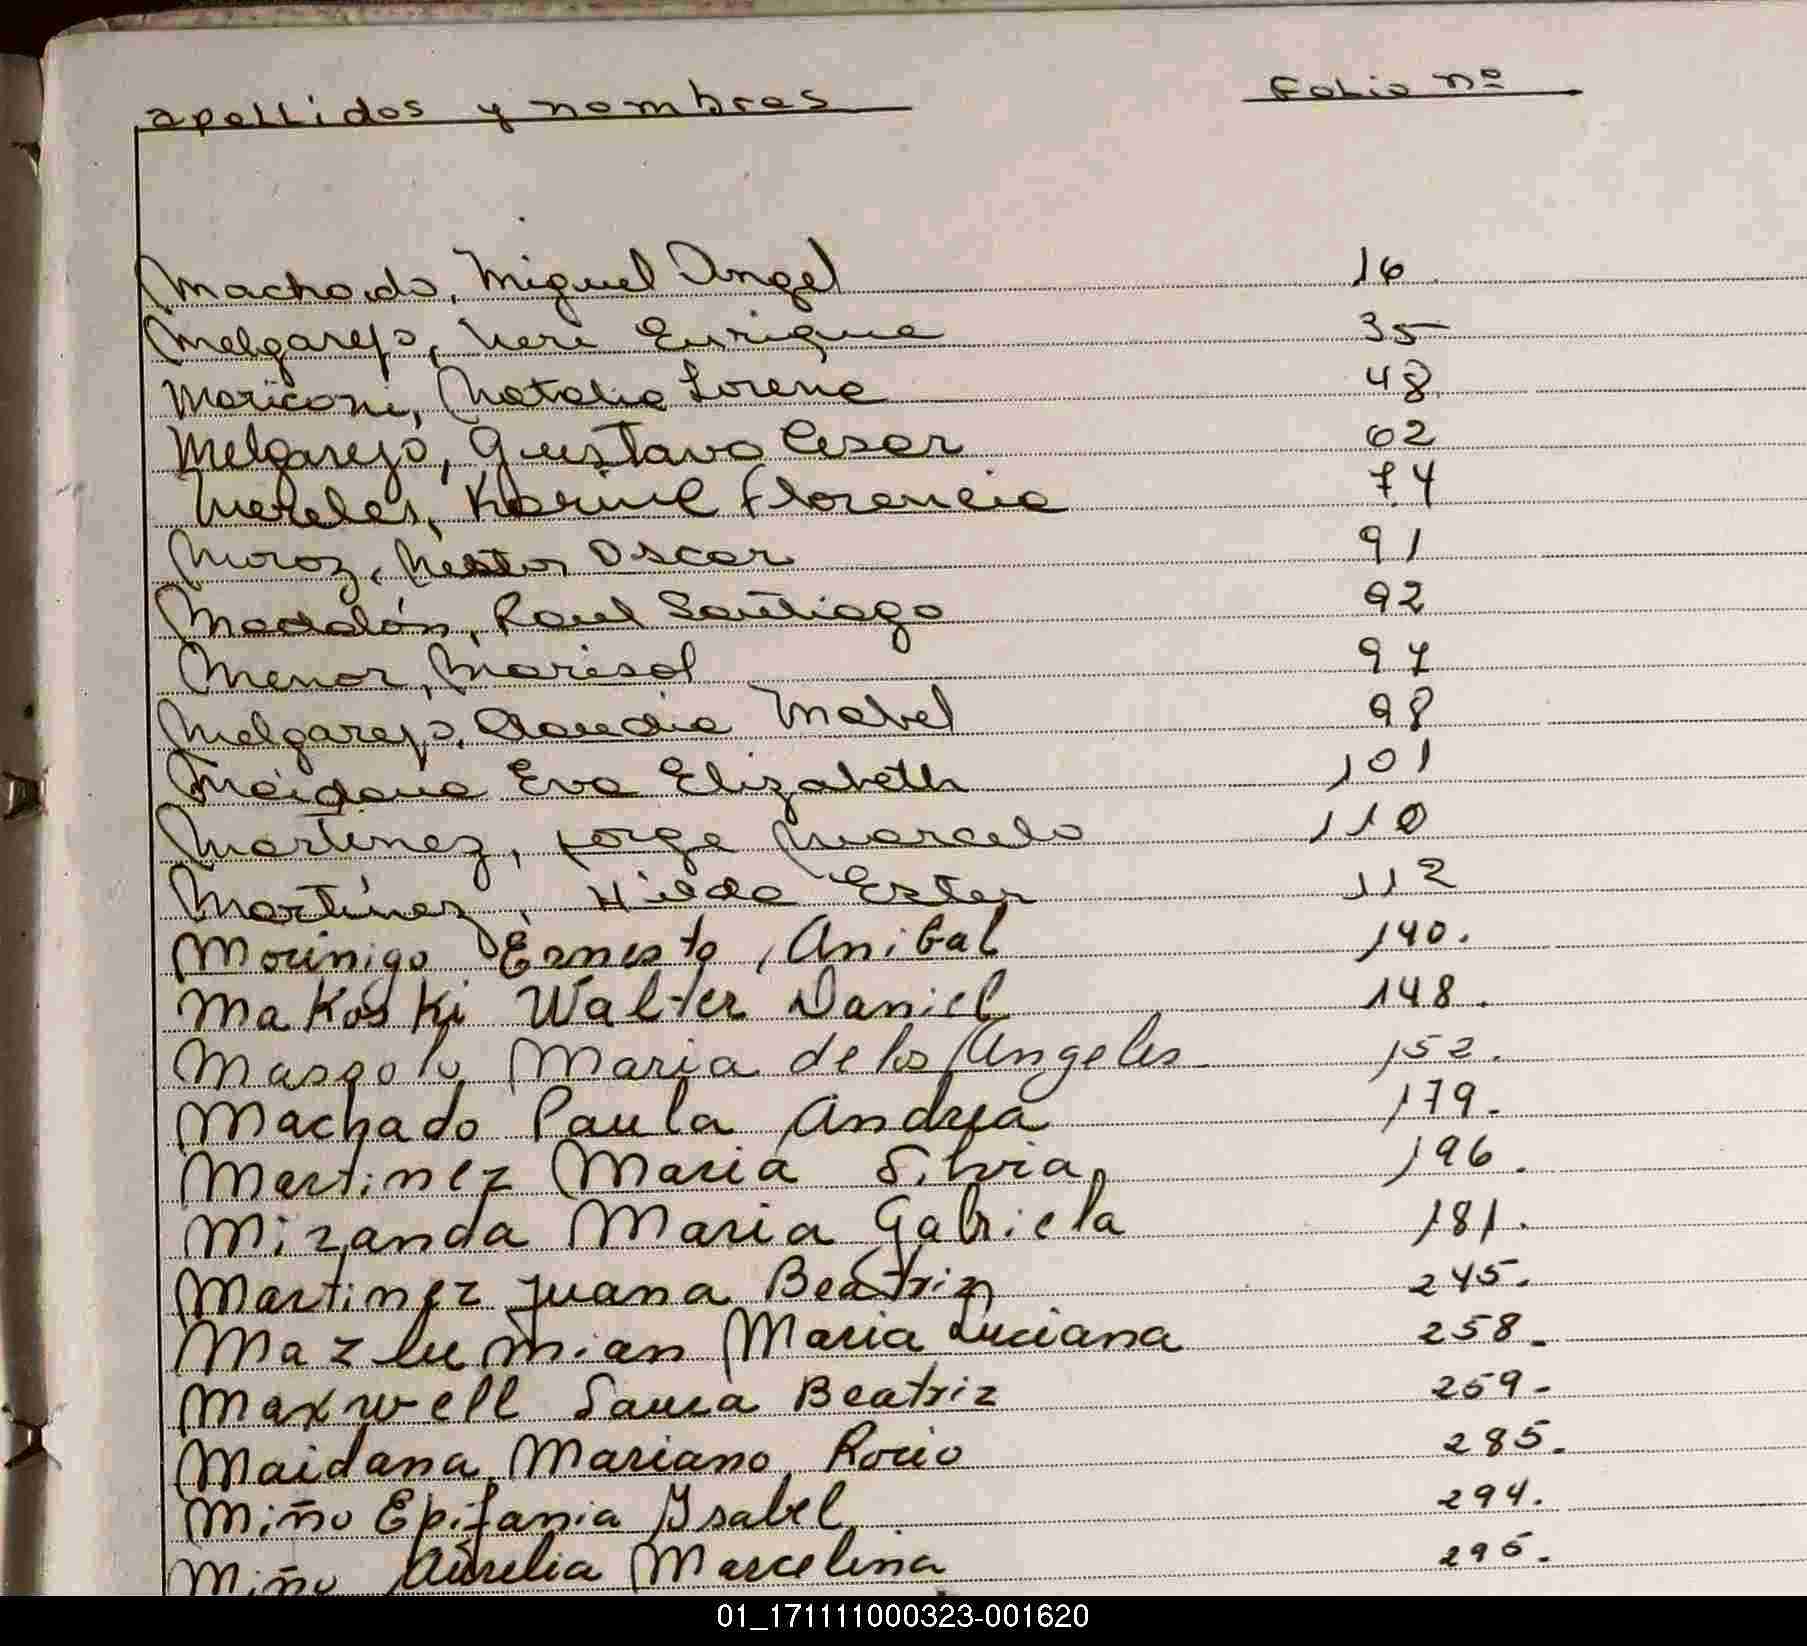 apellidos y nombres Folio nº
Machado, Miguel Angel 16
Melgarejo, Neri Enrique 35
Mariconi, Natalia Lorena 48
Melgarejo, Gustavo Cesar 62
Mereles, Karina Florencia 74
Moroz, Nestor Oscar 91
Maddalón, Raul Santiago 92
Menor, Marisol 97
Melgarejo, Claudia Mabel 98
Maidana Eva Elizabeth 101
Martinez, Jorge Marcelo 110
Martínez, Hilda Ester 112
Morinigo Ernesto, Anibal 140.
Makoski Walter Daniel 148.
Maria de los Angeles 152.
Machado Paula Andrea 179.
Martinez Maria Silvia 196.
Miranda Maria Gabriela 181.
Martinez Juana Beatriz 245.
Mazlumian Maria Luciana 258.
Maxwell Laura Beatriz 259-
Maidana Mariano Rocio 285.
Miño Epifania Ysabel 294.
Miño Aurelia Marcelina 295.
01_171111000323-001620